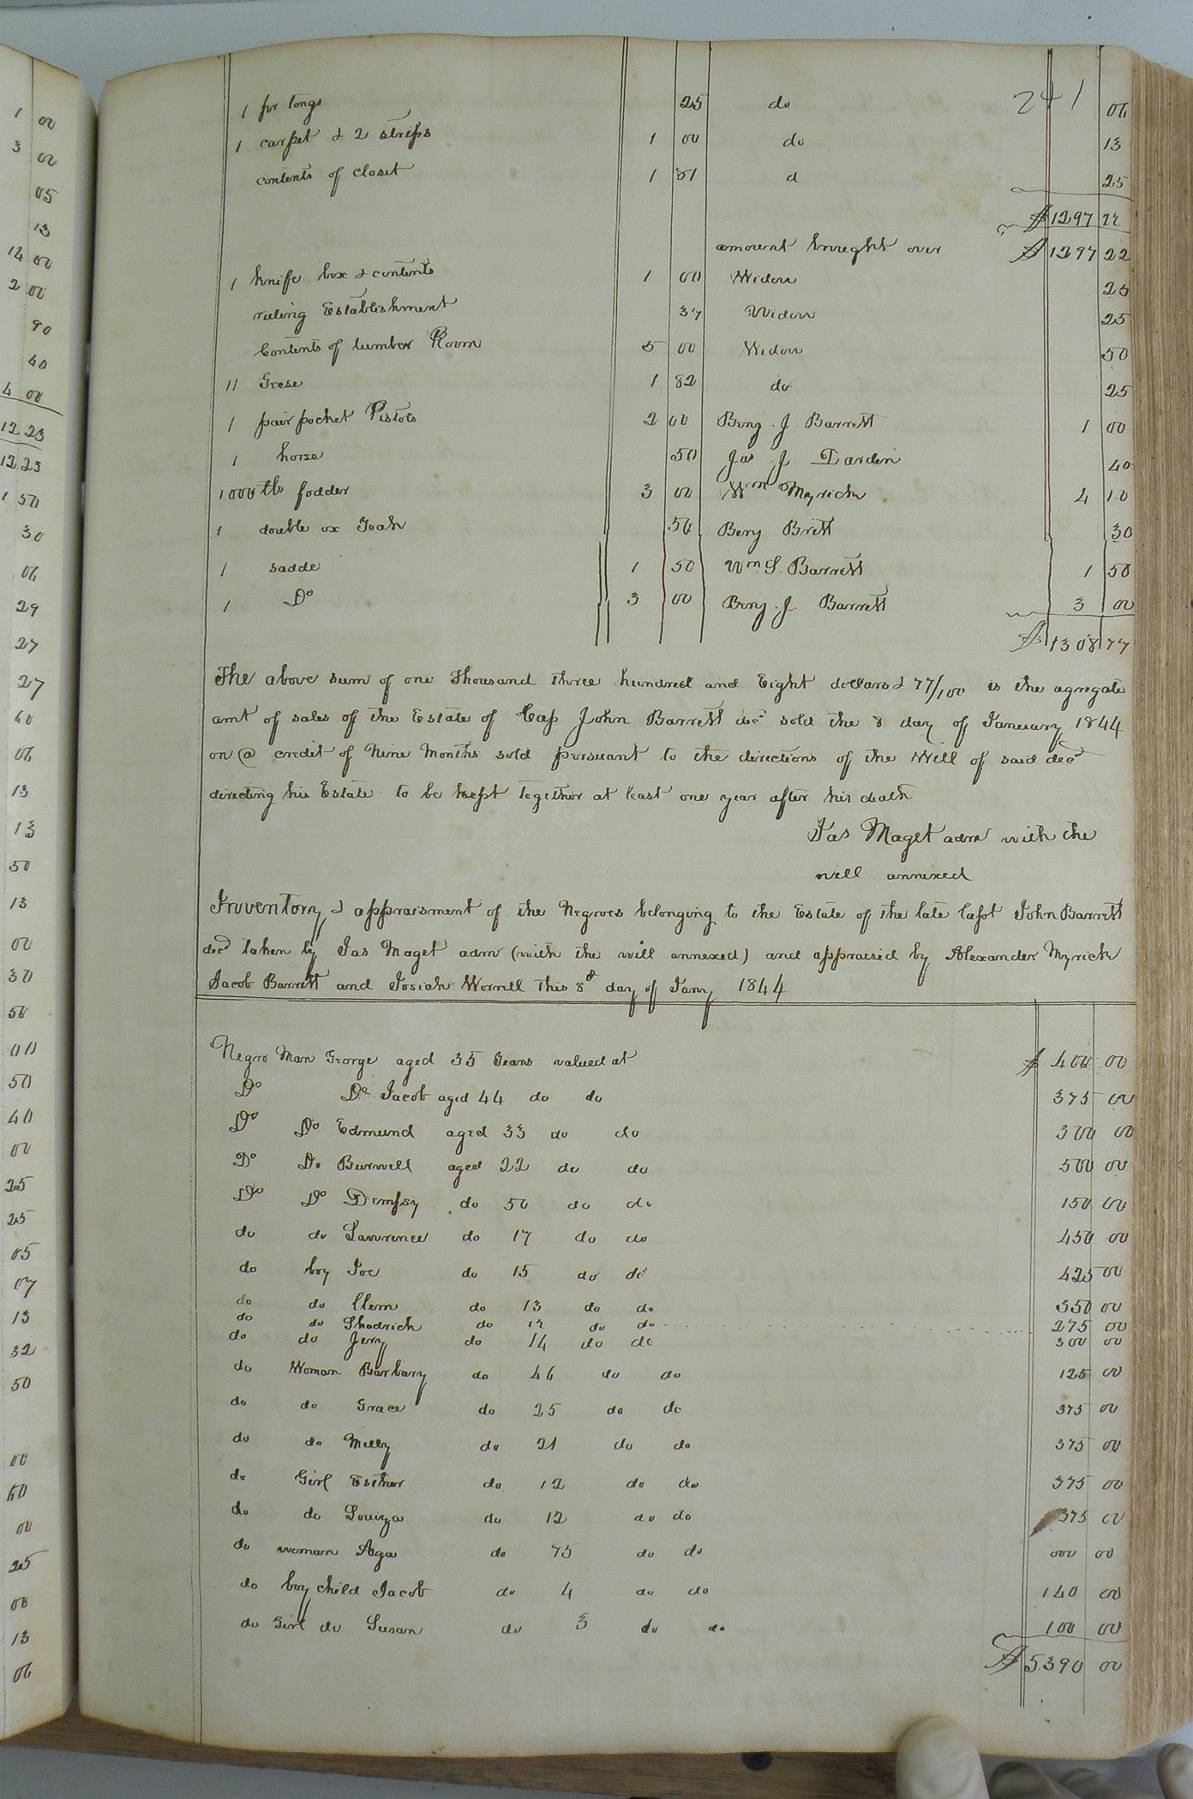 1 00
3 00
05
13
14 00
2 00
90
40
4 00
12 23
12 23
1 50
30
06
29
27
27
60
06
13
13
50
13
00
30
50
00
50
40
00
25
25
05
07
13
32
50
00
60
00
25
00
13
06
241
1 fir tongs 25 do 06
1 carpet & 2 strips 1 00 do 13
contents of closet 1 81 d 25
$1297 22
amount brought over $1297 22
1 knife box & contents 1 00 Widow 25
ruling Establishment 37 Widow 25
Contents of lumber Room 5 00 Widow 50
11 Geese 1 82 do 25
1 pair pocket Pistols 2 00 Benj. J Barrett 1 00
1 horse 50 Jas J. Darden 40
1000 lb fodder 3 00 Wm Myrick 4 10
1 double ox Yoak 50 Benj Britt 30
1 sadde 1 50 Wm S. Barrett 1 50
1 Do 3 00 Benj. J. Barrett 3 00
$1308 77
The above sum of one Thousand three hundred and Eight dollars & 77/100 is the agregate
amt of sales of the Estate of Cap John Barrett decd sold the 8 day of January 1844
on @ credit of Nine Months sold pursuant to the directions of the Will of said decd
directing his Estate to be kept together at least one year after his death
Jas Maget adm with the
will annexed
Inventory & appraisment of the Negroes belonging to the Estate of the late Capt John Barrett
decd taken by Jas Maget adm (with the will annexed) and appraised by Alexander Myrick
Jacob Barrett and Josiah Worrell this 8d day of Jany 1844
Negro Man George aged 35 Years valued at $ 400 00
Do Do Jacob aged 44 do do 375 00
Do Do Edmund aged 33 do do 300 00
Do Do Burwell aged 22 do do 500 00
Do Do Dempsy do 50 do do 150 00
do do Lawrence do 17 do do 450 00
do boy Joe do 15 do do 425 00
do do Clem do 13 do do 350 00
do do Shedrich do 12 do do 275 00
do do Jerry do 14 do do 300 00
do Woman Barbary do 46 do do 125 00
do do Grace do 25 do do 375 00
do do Milly do 21 do do 375 00
do Girl Esther do 12 do do 375 00
do do Louiza do 12 do do 375 00
do woman Aga do 75 do do 000 00
do boy child Jacob do 4 do do 140 00
do Girl do Susan do 3 do do 100 00
$5.390 00